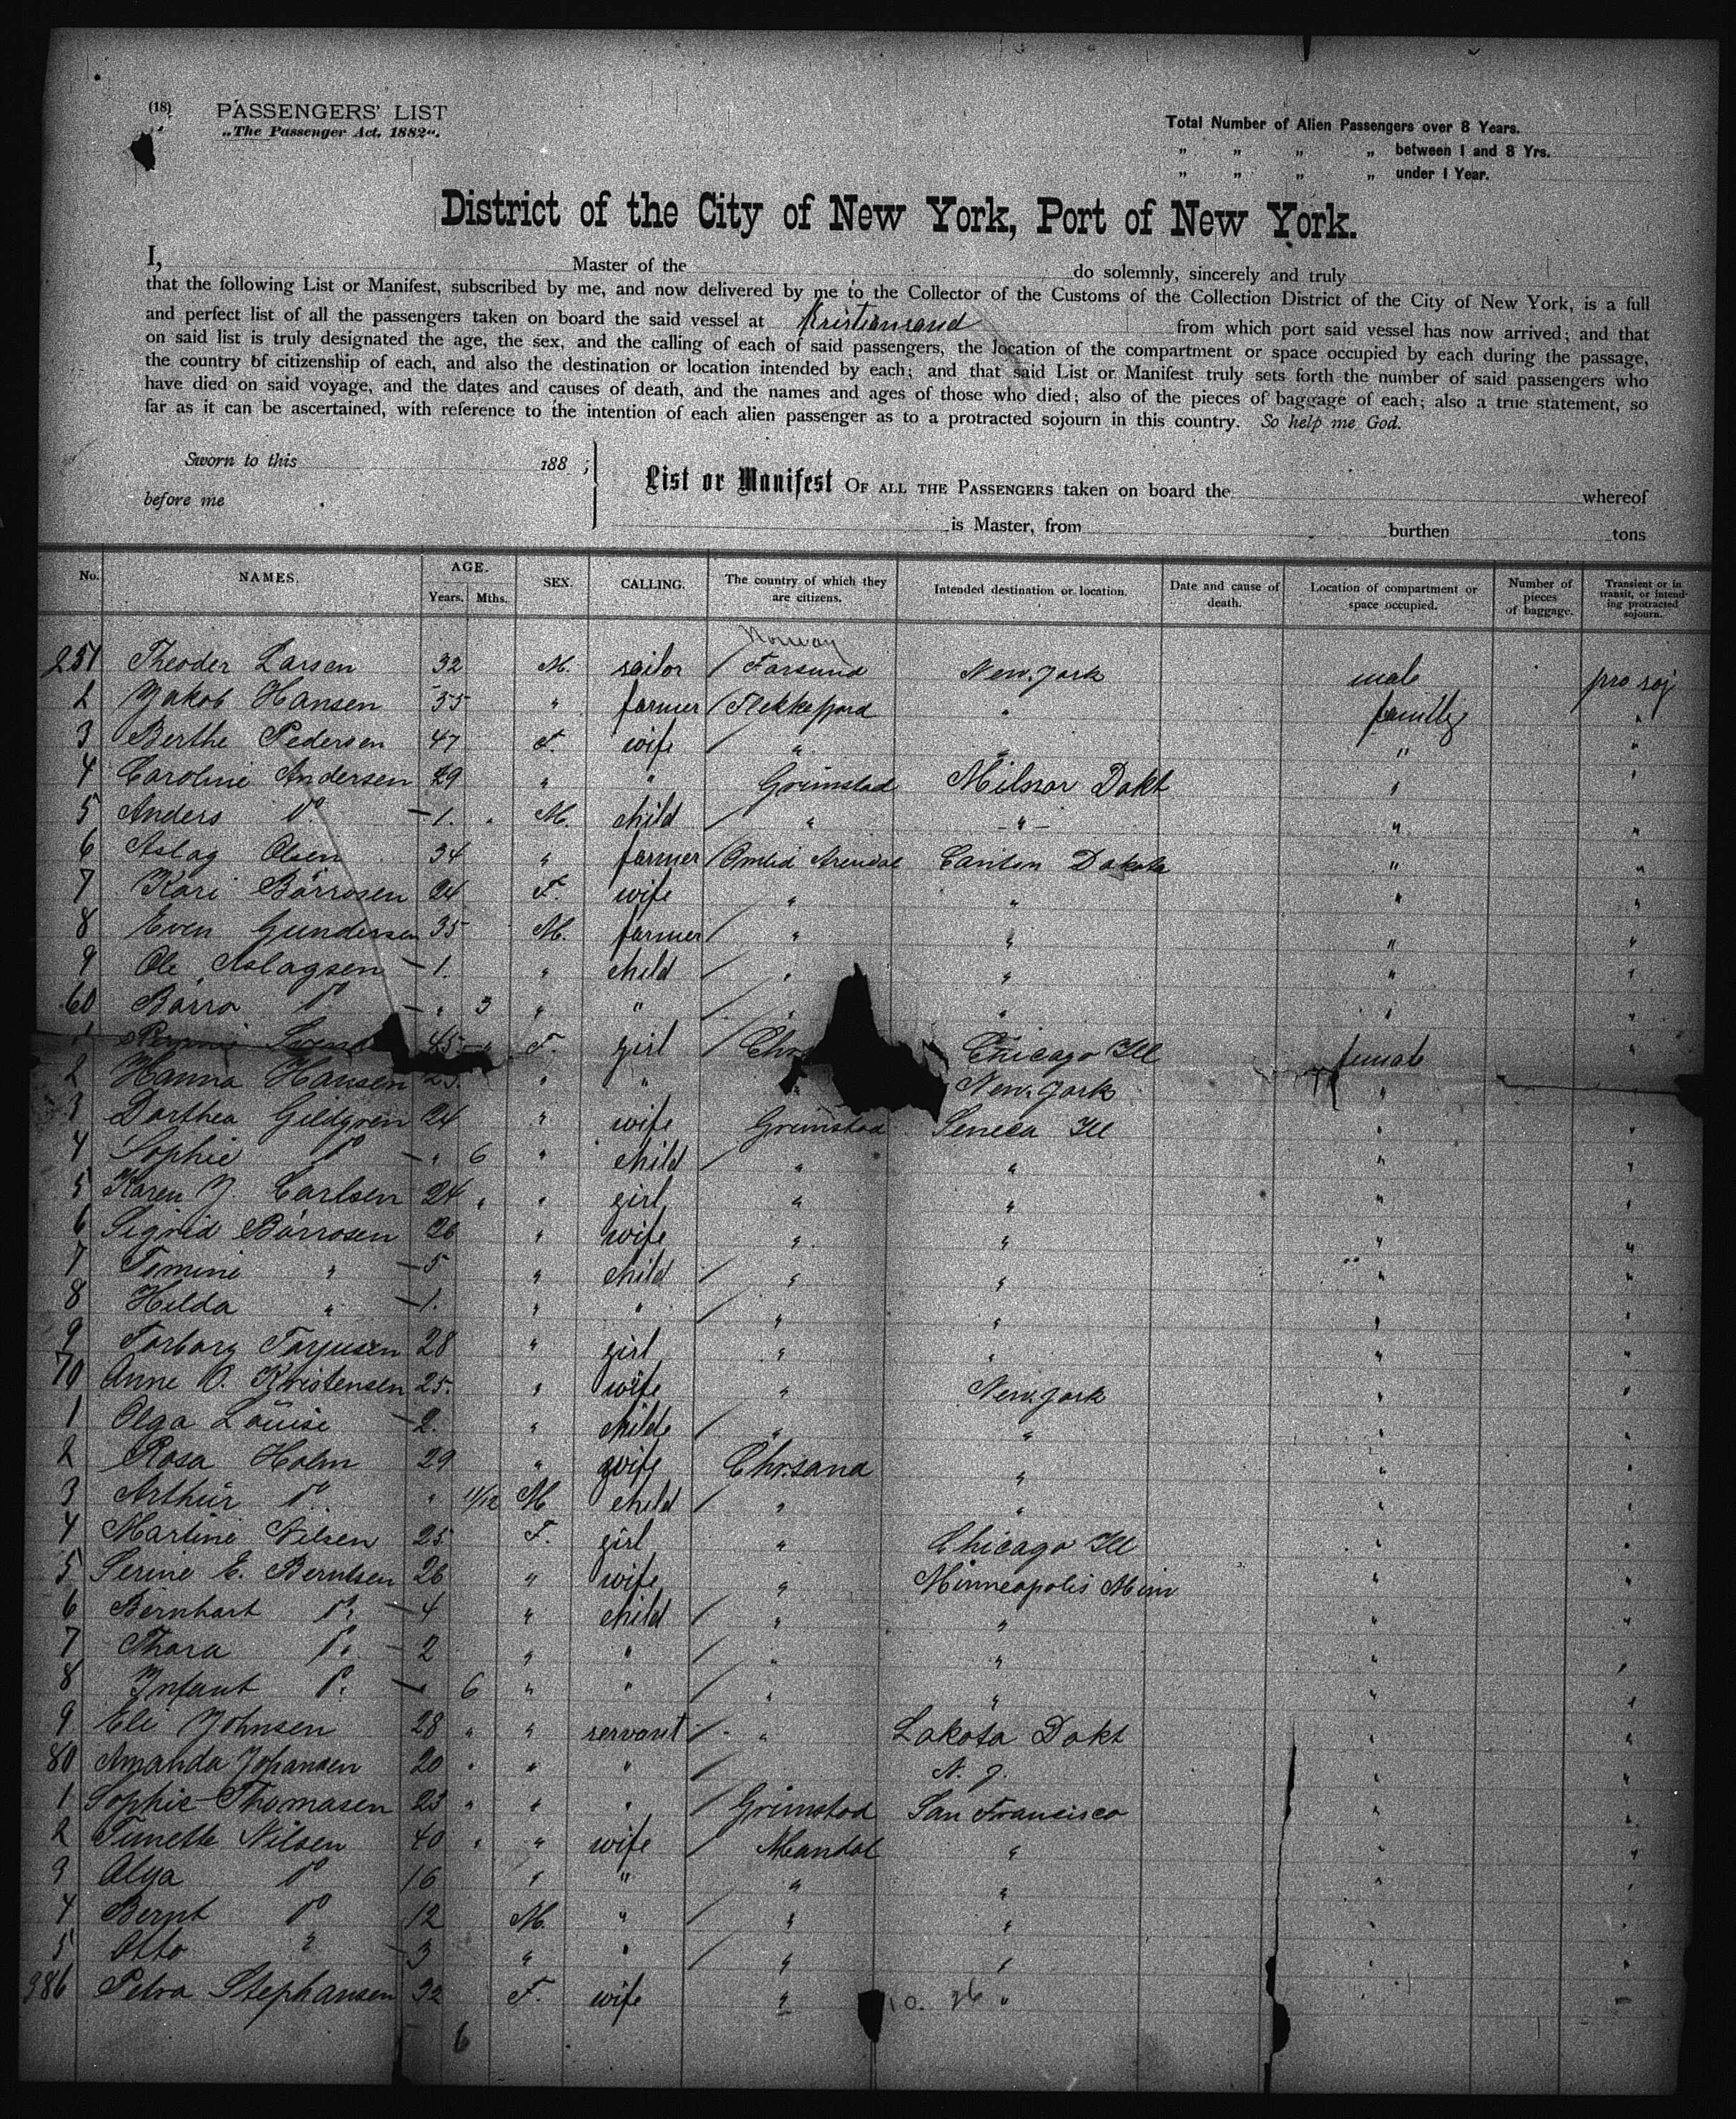 (18) PASSENGERS' LIST
„The Passenger Act, 1882".
Total Number of Alien Passengers over 8 Years.
„ „ „ „ between 1 and 8 Yrs.
„ „ „ „ under 1 Year.
District of the City of New York, Port of New York.
I, Master of the do solemnly, sincerely and truly
that the following List or Manifest, subscribed by me, and now delivered by me to the Collector of the Customs of the Collection District of the City of New York, is a full
and perfect list of all the passengers taken on board the said vessel at Kristiansand from which port said vessel has now arrived; and that
on said list is truly designated the age, the sex, and the calling of each of said passengers, the location of the compartment or space occupied by each during the passage,
the country of citizenship of each, and also the destination or location intended by each; and that said List or Manifest truly sets forth the number of said passengers who
have died on said voyage, and the dates and causes of death, and the names and ages of those who died; also of the pieces of baggage of each; also a true statement, so
far as it can be ascertained, with reference to the intention of each alien passenger as to a protracted sojourn in this country. So help me God.
Sworn to this 188 ;
before me
List or Manifest OF ALL THE PASSENGERS taken on board the whereof
is Master, from burthen tons
No. NAMES. AGE. Years. Mths. SEX. CALLING. The country of which they are citizens. Intended destination or location. Date and cause of death. Location of compartment or space occupied. Number of pieces of baggage. Transient or in transit, or intending protracted sojourn.
Norway
251 Theoder Larsen 32 M. sailor / Farsund New. York male pro soj
2 Jakob Hansen 55 " farmer / Flekkefjord " familly "
3 Berthe Pedersen 47 F. wife / " " " "
4 Caroline Andersen 29 " " Grimstad Milnor Dakt " "
5 Anders Do. — 1. M. child / " " " "
6 Aslag Olsen 34 " farmer / Omlid Arendal Canton Dakota " "
7 Kari Börrosen 24 F. wife " " " "
8 Even Gundersen 35 M. farmer / " " " "
9 Ole Aslagsen — 1. " child / " " " "
60 Börro Do — " 3 " " / " " "
1 45 F. girl / Chr Chicago Ill female "
2 Hanna Hansen " " New. York " "
3 Dorthea Gildgren 24 " wife Grimstad Seneca Ill " "
4 Sophie Do — " 6 " child / " " " "
5 Karen J. Carlsen 24 " " girl " " " "
6 Sigrid Börrosen 26 " wife " " " "
7 Timine " — 5 " child / " " " "
8 Hilda " — 1. " " / " " " "
9 Torborg Torjusen 28 " girl " " " "
70 Anne O. Kristensen 25. " wife " New. York " "
1 Olga Louise — 2. " childe / " " " "
2 Rosa Holm 29 " wife Chr.sand " " "
3 Arthur Do. " 11/12 M child / " " " "
4 Martine Nilsen 25 F. girl " Chicago Ill " "
5 Serine E. Berntsen 26 " wife " Minneapolis Minn " "
6 Bernhart Do. — 4 " child / " " " "
7 Thora Do. — 2 " " / " " " "
8 Infant Do. — " 6 " " / " " " "
9 Eli Johnsen 28 " " servant / " Lakota Dakt " "
80 Amanda Johansen 20 " " " / N. J. " "
1 Sophie Thomasen 23 " " " / Grimstad San Francisco " "
2 Tunette Nilsen 40 " " wife / Mandal " " "
3 Alga Do 16 " " " " " "
4 Bernt Do 12 M. " / " " " "
5 Otto " — 3 " " / " " " "
386 Petra Stephansen 32 F. wife " 10. 26 " "
6